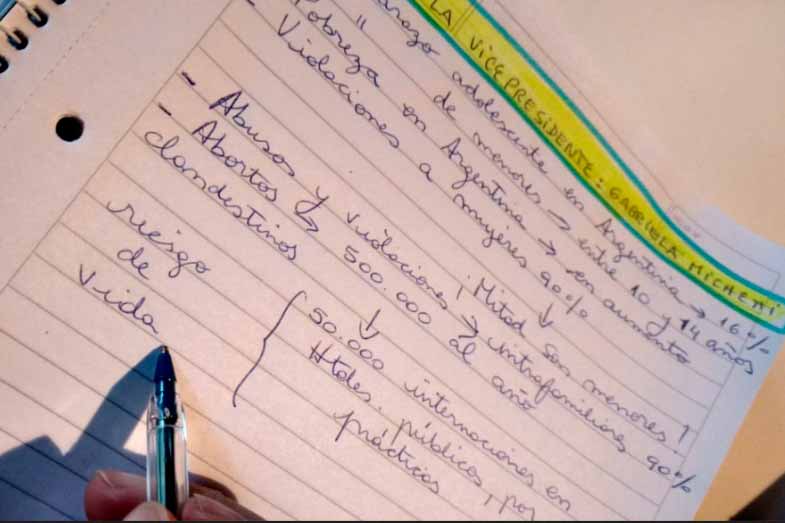 LA VICEPRESIDENTE: GABRIELA MICHETTI
adolescente en Argentina → 16%
" de menores → entre 10 y 14 años
Pobreza en Argentina → en aumento
- Violaciones a mujeres 90%
↓
¡Mitad son menores!
- Abusos y violaciones → intrafamiliares 90%
- Abortos ↳ 500.000 al año
clandestinos ↓
riesgo
de
vida
{ 50.000 internaciones en
Htales. públicos, por
prácticas